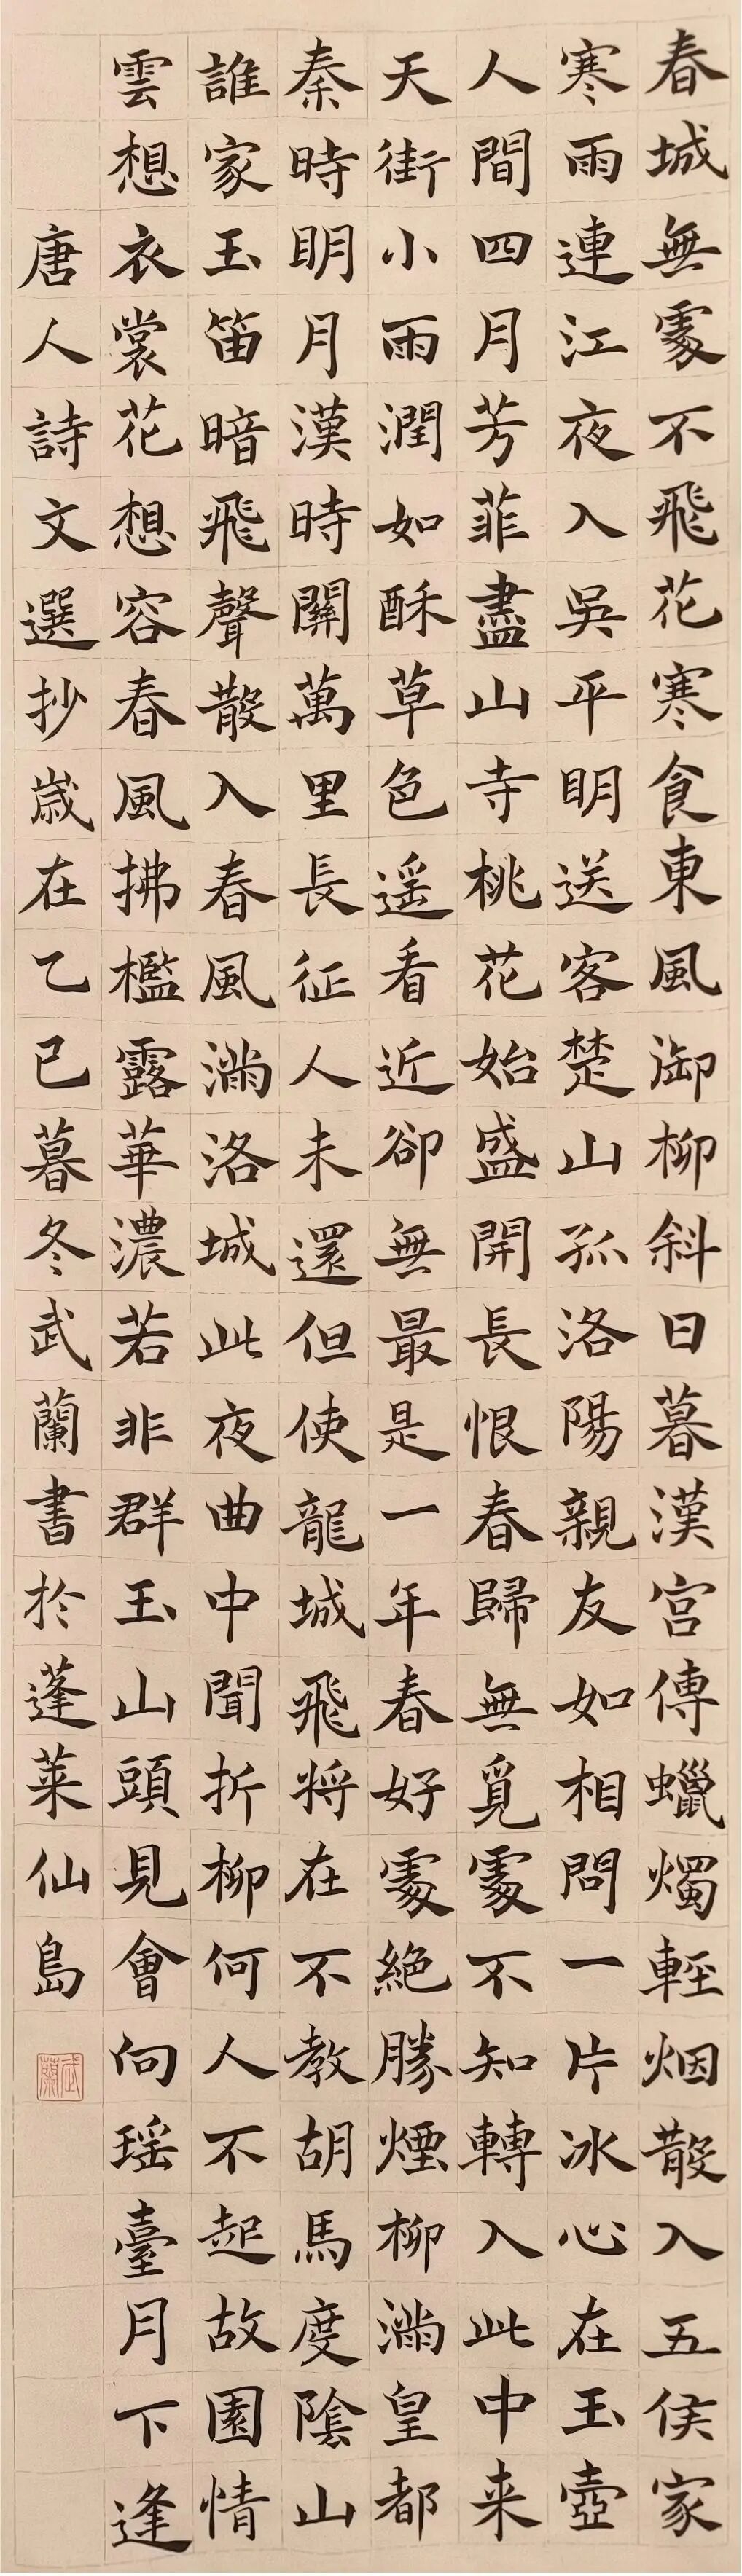 春城無處不飛花寒食東風御柳斜日暮漢宮傳蠟燭輕烟散入五侯家
寒雨連江夜入吳平明送客楚山孤洛陽親友如相問一片冰心在玉壺
人間四月芳菲盡山寺桃花始盛開長恨春歸無覓處不知轉入此中来
天街小雨潤如酥草色遥看近卻無最是一年春好處絕勝煙柳滿皇都
秦時明月漢時關萬里長征人未還但使龍城飛將在不教胡馬度陰山
誰家玉笛暗飛聲散入春風滿洛城此夜曲中聞折柳何人不起故園情
雲想衣裳花想容春風拂檻露華濃若非群玉山頭見會向瑶臺月下逢
唐人詩文選抄歲在乙巳暮冬武蘭書於蓬萊仙島
武蘭